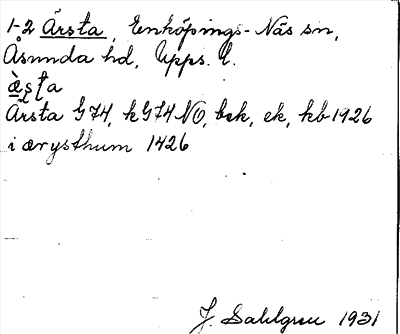 1-2 Ärsta, Enköpings-Näs sn,
Åsunda hd, Upps. l.
æ̀ṣṭa
Ärsta G74, kG74NO, bek, ek, kb 1926
i ærysthum 1426
J. Sahlgren 1931